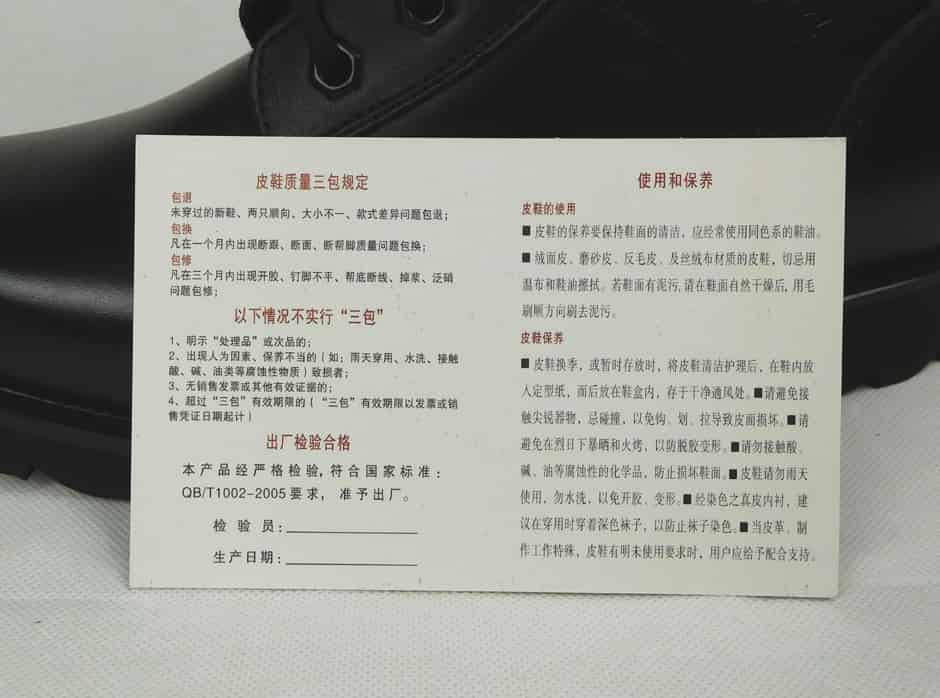 皮鞋质量三包规定
包退
未穿过的新鞋、两只顺向、大小不一、款式差异问题包退；
包换
凡在一个月内出现断跟、断面、断帮脚质量问题包换；
包修
凡在三个月内出现开胶、钉脚不平、帮底断线、掉浆、泛硝
问题包修；
以下情况不实行“三包”
1、明示“处理品”或次品的；
2、出现人为因素、保养不当的（如：雨天穿用、水洗、接触
酸、碱、油类等腐蚀性物质）致损者；
3、无销售发票或其他有效证据的；
4、超过“三包”有效期限的（“三包”有效期限以发票或销
售凭证日期起计）
出厂检验合格
本产品经严格检验,符合国家标准：
QB/T1002-2005要求，准予出厂。
检 验 员：
生产日期：
使用和保养
皮鞋的使用
■ 皮鞋的保养要保持鞋面的清洁，应经常使用同色系的鞋油。
■ 绒面皮、磨砂皮、反毛皮、及丝绒布材质的皮鞋，切忌用
温布和鞋油擦拭。若鞋面有泥污,请在鞋面自然干燥后,用毛
刷顺方向刷去泥污。
皮鞋保养
■ 皮鞋换季，或暂时存放时，将皮鞋清洁护理后，在鞋内放
人定型纸，而后放在鞋盒内，存于干净通风处。■请避免接
触尖锐器物，忌碰撞，以免钩、划、拉导致皮面损坏。■请
避免在烈日下暴晒和火烤，以防脱胶变形。■请勿接触酸、
碱、油等腐蚀性的化学品，防止损坏鞋面。■皮鞋请勿雨天
使用，勿水洗，以免开胶、变形。■经染色之真皮内衬，建
议在穿用时穿着深色袜子，以防止袜子染色。■当皮革、制
作工作特殊，皮鞋有明未使用要求时，用户应给予配合支持。